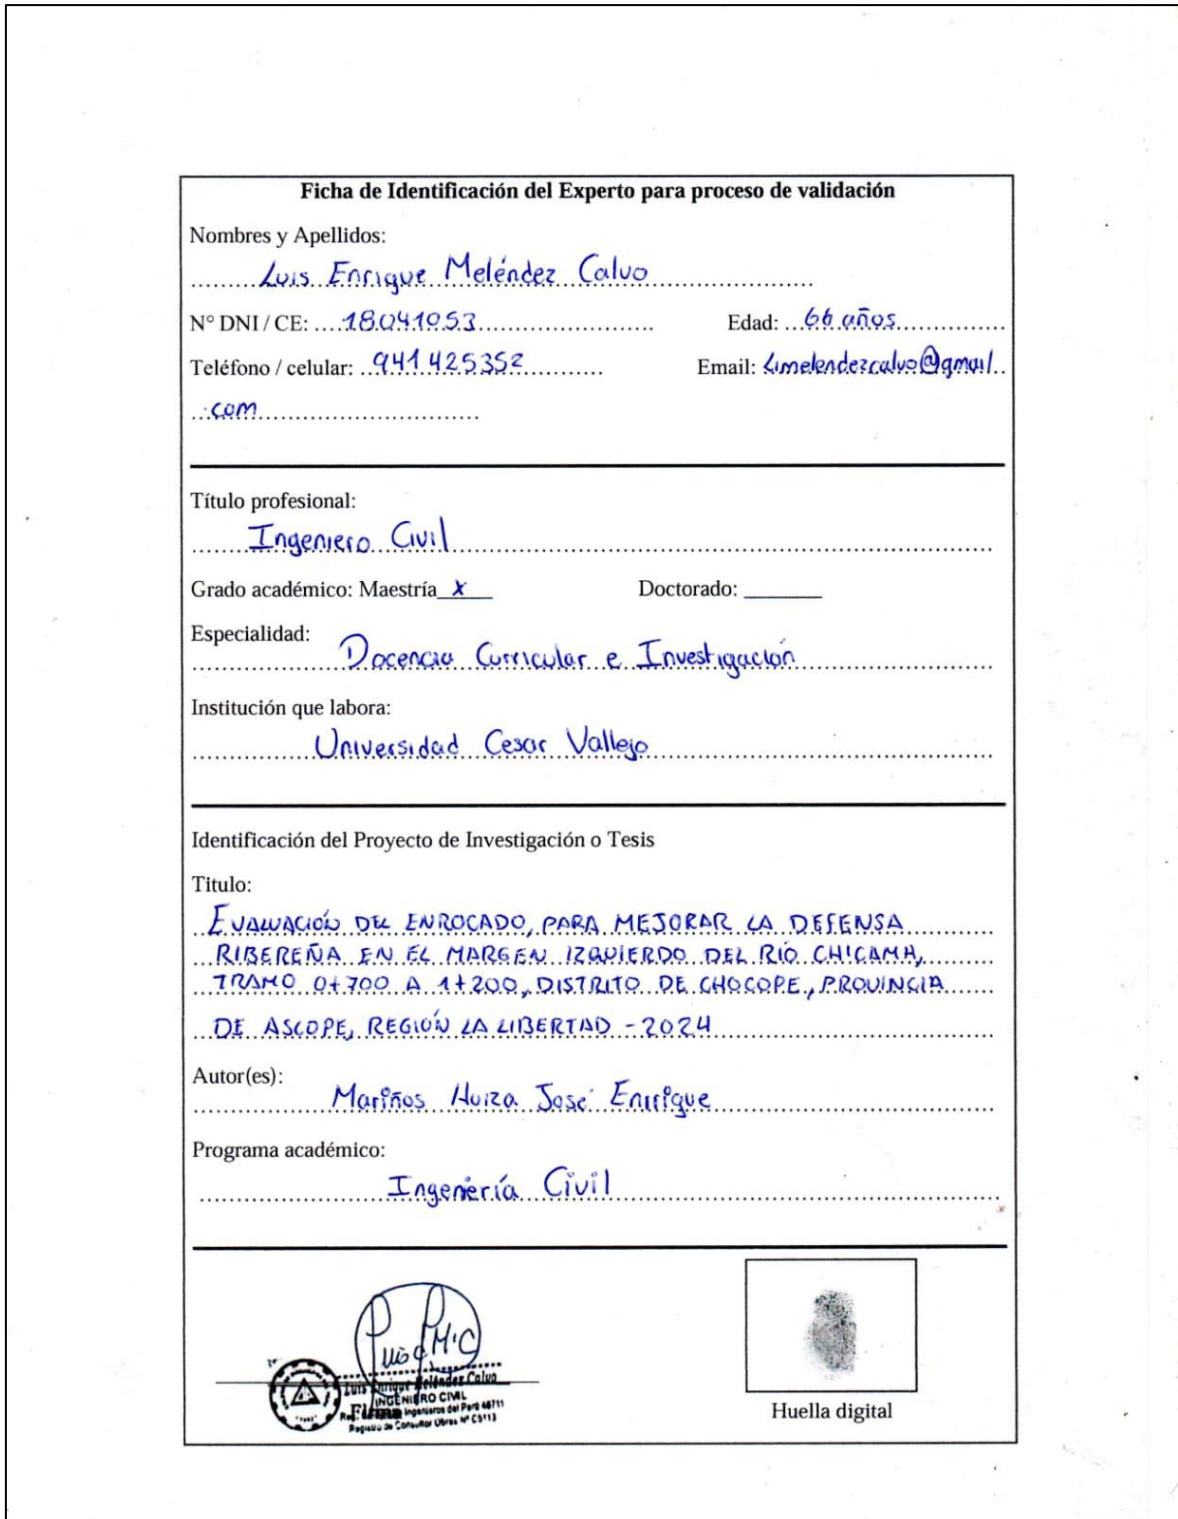 Ficha de Identificación del Experto para proceso de validación
Nombres y Apellidos:
Luis Enrique Meléndez Calvo
N° DNI / CE: 18041053 Edad: 66 años
Teléfono / celular: 941425352 Email: Limelendezcalvo@gmail
.com
Título profesional:
Ingeniero Civil
Grado académico: Maestría X Doctorado:
Especialidad:
Docencia Curricular e Investigación
Institución que labora:
Universidad Cesar Vallejo
Identificación del Proyecto de Investigación o Tesis
Titulo:
EVALUACIÓN DEL ENROCADO, PARA MEJORAR LA DEFENSA
RIBEREÑA EN EL MARGEN IZQUIERDO DEL RÍO CHICAMA,
TRAMO 0+700 A 1+200, DISTRITO DE CHOCOPE, PROVINCIA
DE ASCOPE, REGIÓN LA LIBERTAD - 2024
Autor(es):
Mariños Huiza José Enrrique
Programa académico:
Ingeniería Civil
Luis Enrique Meléndez Calvo
INGENIERO CIVIL
Firma Ingenieros del Perú 46711
Registro de Consultor Obras N° C5113
Huella digital